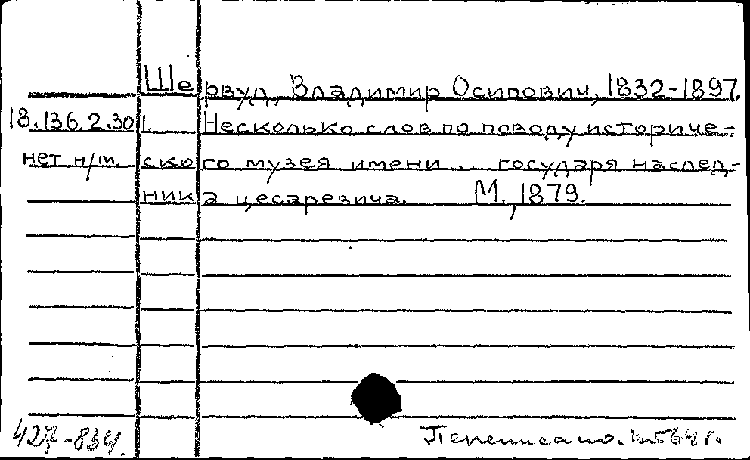 Шервуд, Владимир Осипович, 1832-1897.
18.136.2.301. Несколько слов по поводу историче-
нет н/т. ского музея имени .. государя наслед-
ника цесаревича. М., 1879.
Переписано.